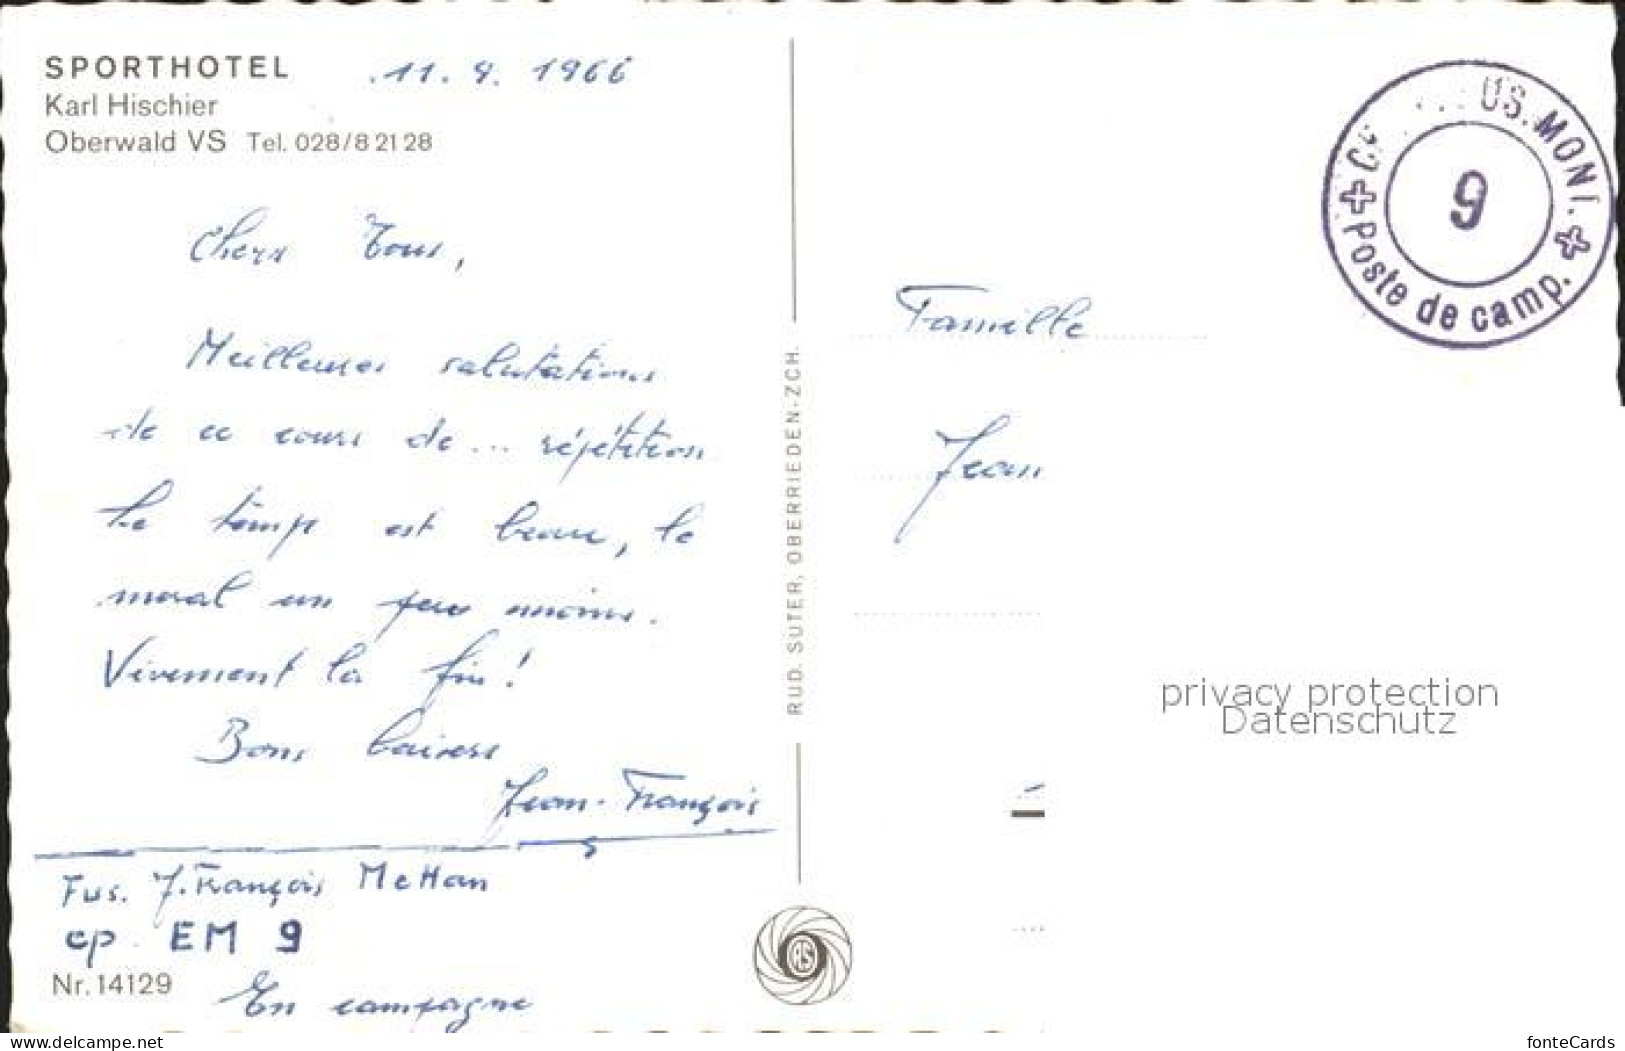 SPORTHOTEL
Karl Hischier
Oberwald VS Tel. 028/8 21 28
11. 9. 1966
Chers Tous,
Meilleures salutations
de ce cours de... répétition
Le temps est beau, le
moral un peu moins.
Vivement la fin!
Bons baisers
Jean-François
Fus. J. François Mettan
cp EM 9
Nr. 14129
En campagne
RUD. SUTER, OBERRIEDEN-ZCH.
RS
US. MONT.
9
Poste de camp.
Famille
Jean
privacy protection
Datenschutz
www.delcampe.net
fonteCards